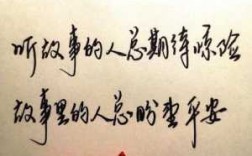 听故事的人总期待惊险
故事里的人总盼望平安